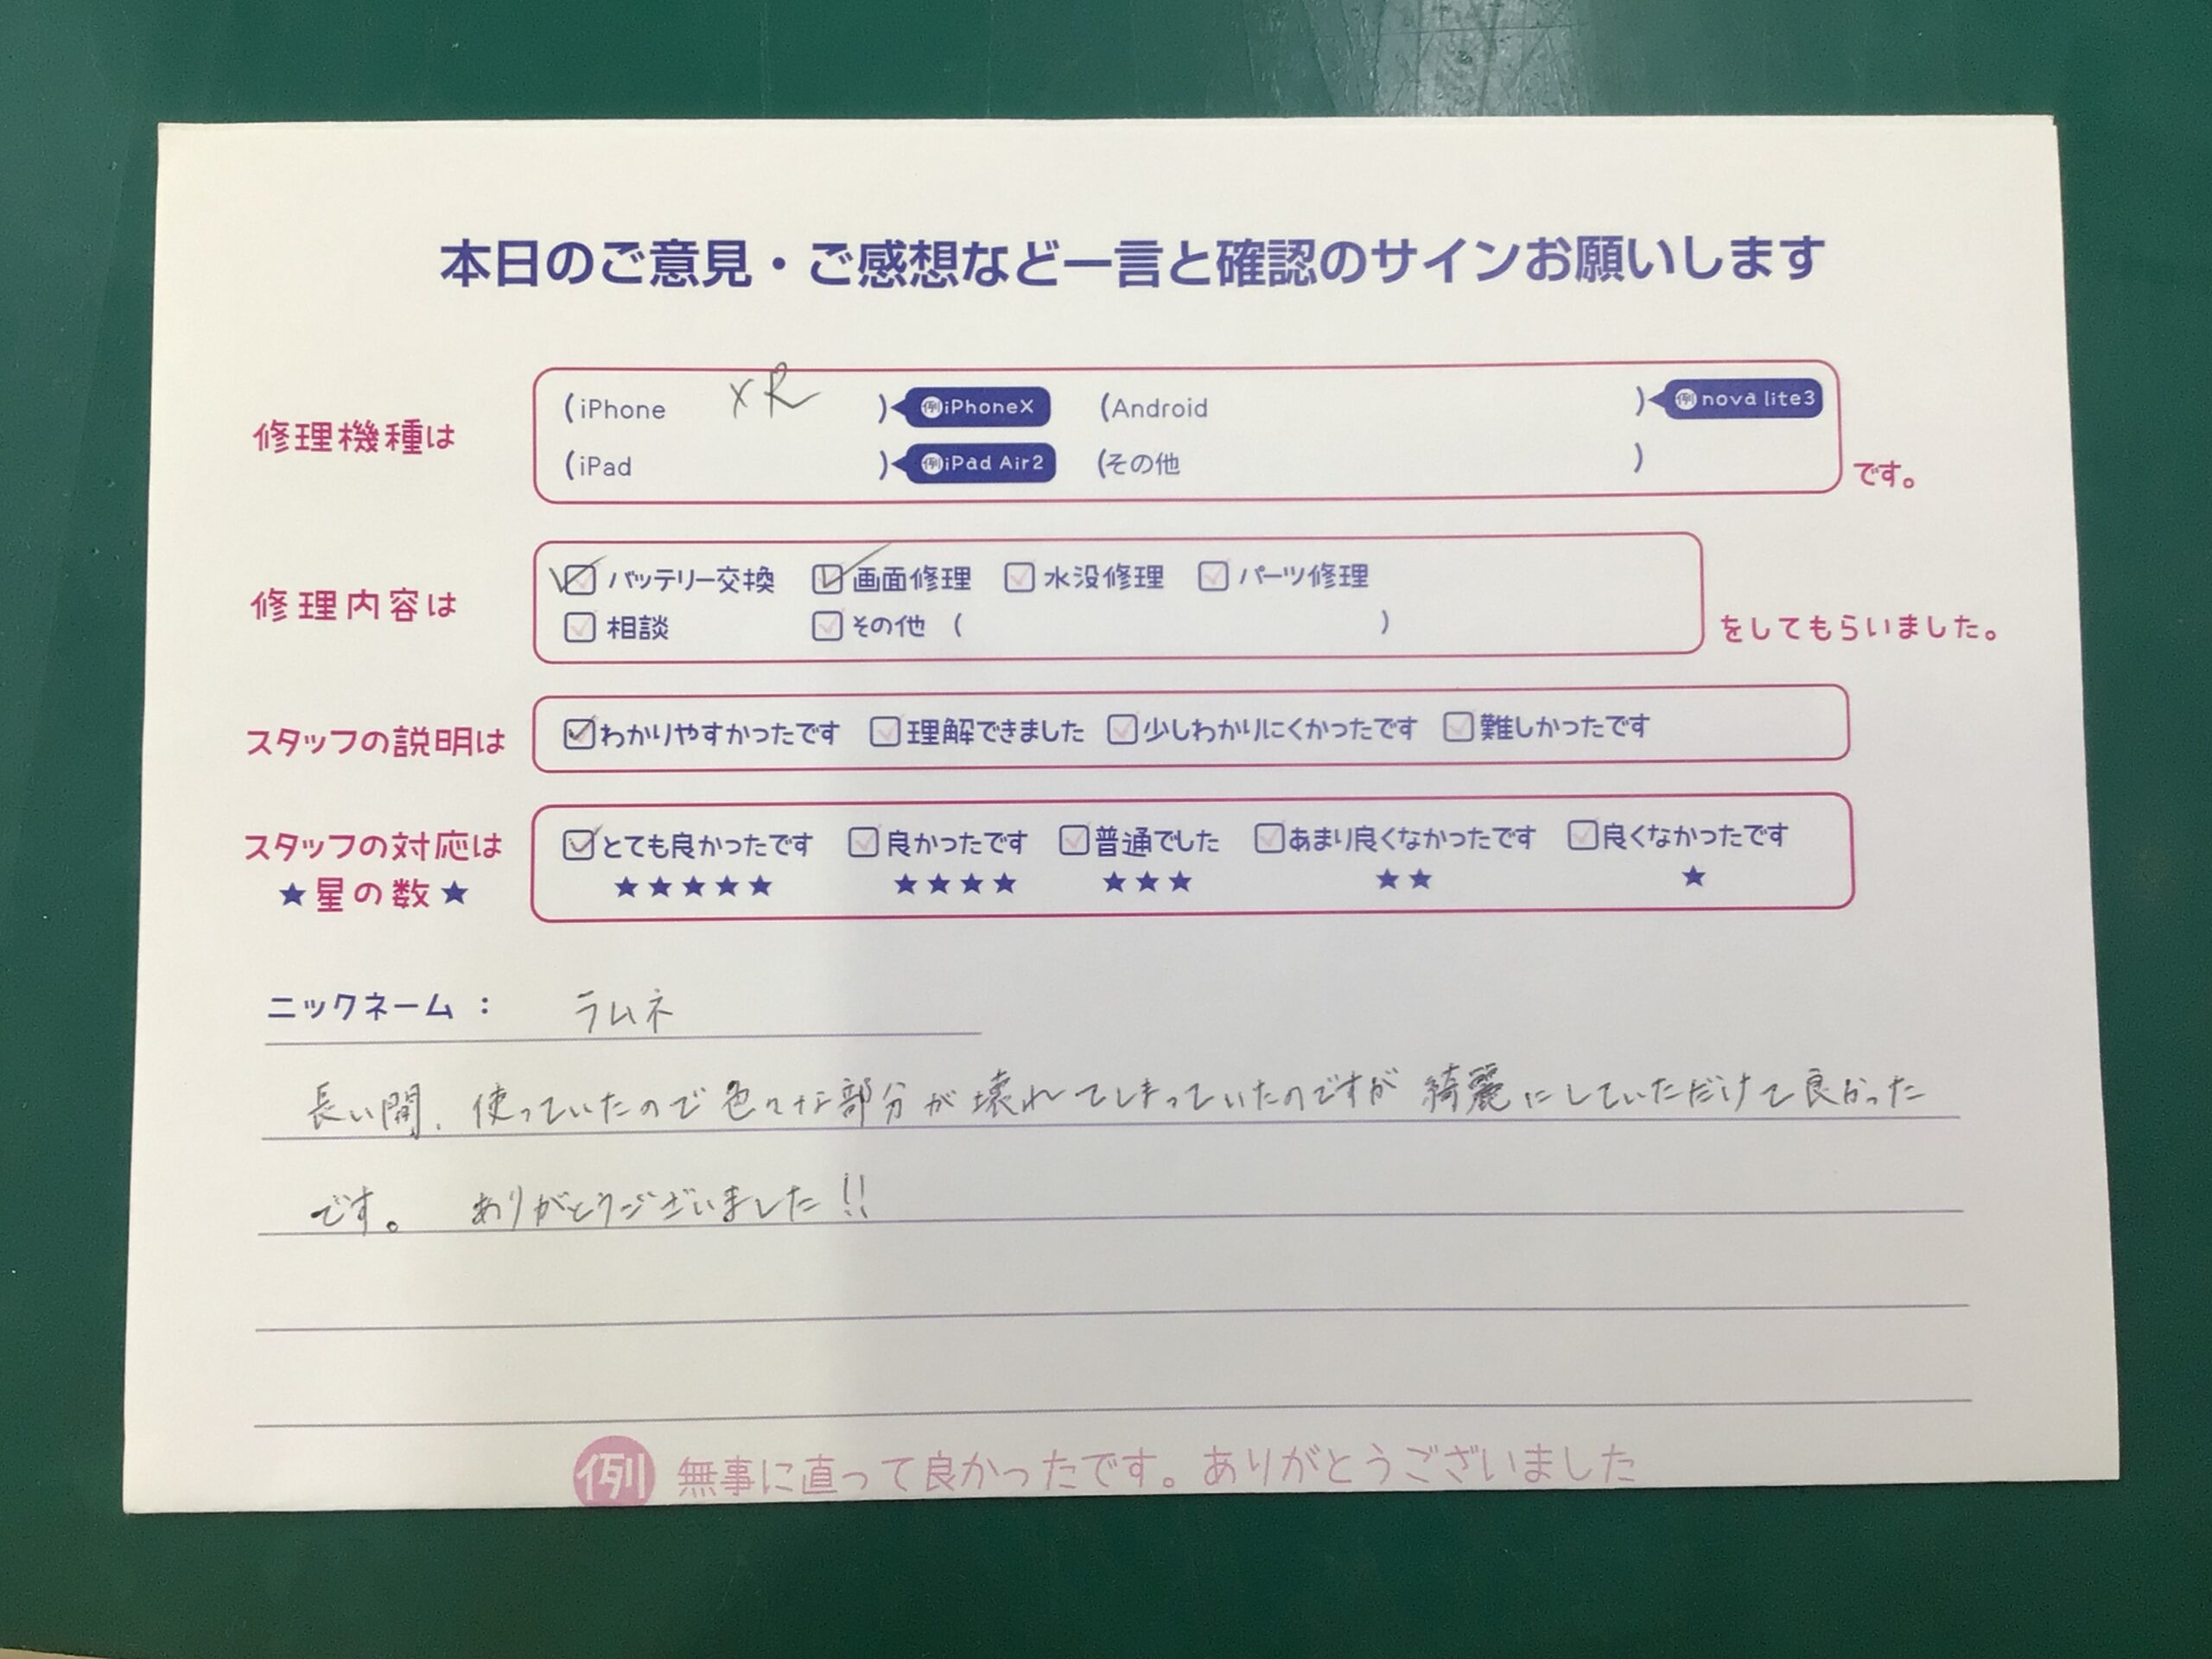 本日のご意見・ご感想など一言と確認のサインお願いします
修理機種は
(iPhone XR ) 例iPhoneX (Android ) 例nova lite3
(iPad ) 例iPad Air2 (その他 )
です。
修理内容は
バッテリー交換 画面修理 水没修理 パーツ修理
相談 その他 ( )
をしてもらいました。
スタッフの説明は
わかりやすかったです 理解できました 少しわかりにくかったです 難しかったです
スタッフの対応は
★星の数★
とても良かったです 良かったです 普通でした あまり良くなかったです 良くなかったです
★★★★★ ★★★★ ★★★ ★★ ★
ニックネーム： ラムネ
長い間、使っていたので色々な部分が壊れてしまっていたのですが綺麗にしていただけて良かった
です。 ありがとうございました!!
例 無事に直って良かったです。ありがとうございました